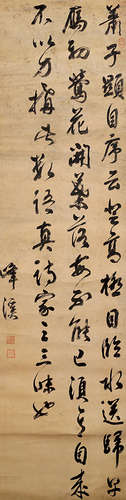 蕭子顯自序云登高極目臨水送歸早
鴈初鶯花開葉落每不能已須其自來
不以力構此數語真詩家之三昧也
峰溪